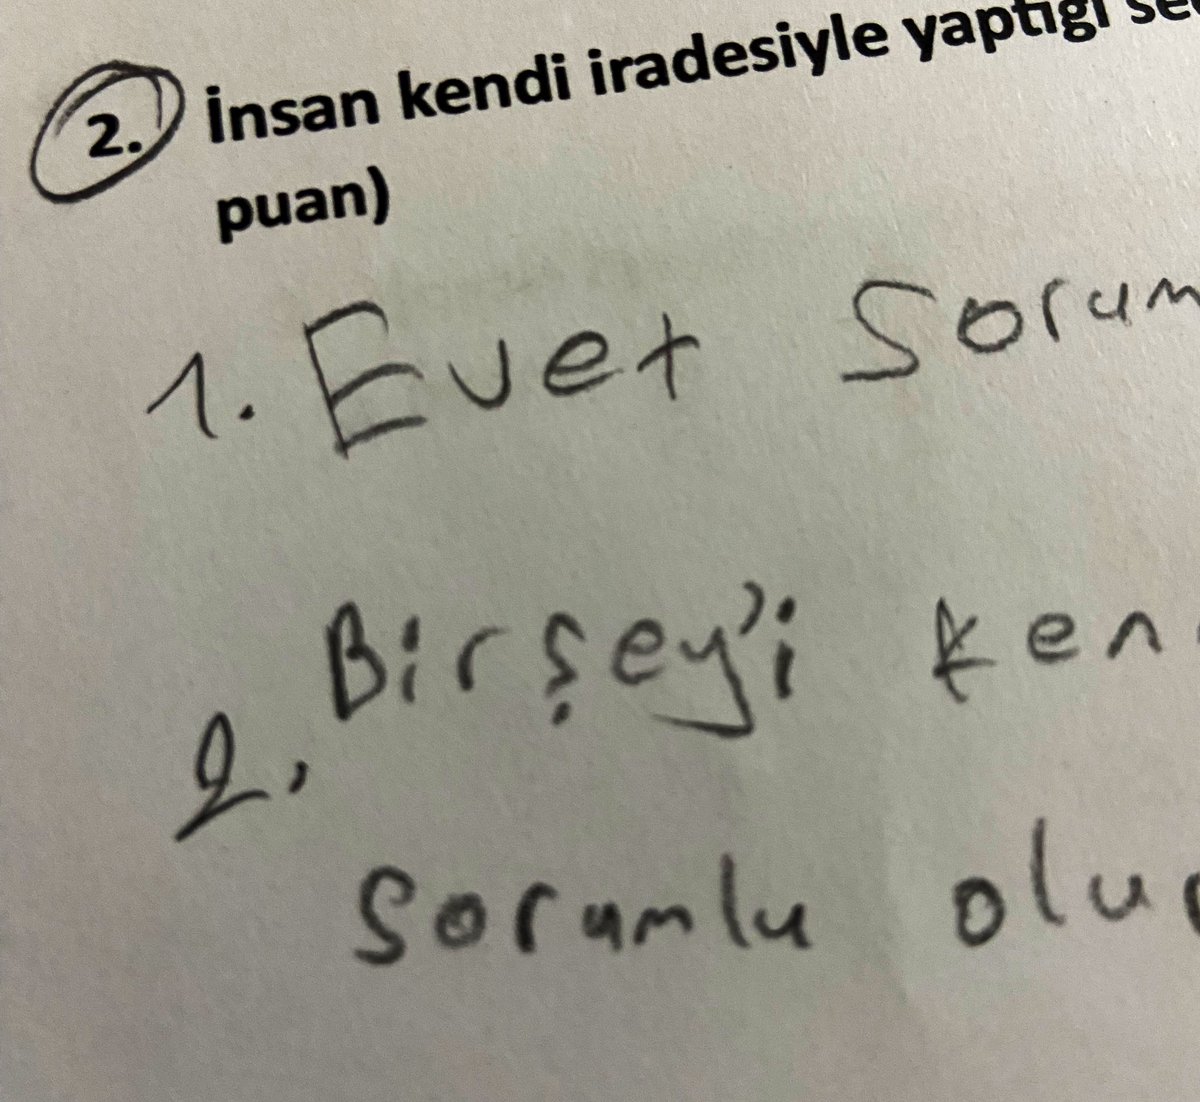 2. İnsan kendi iradesiyle yaptığı se
puan)
1. Evet Sorum
Birşey'i ken
2.
Sorumlu olur